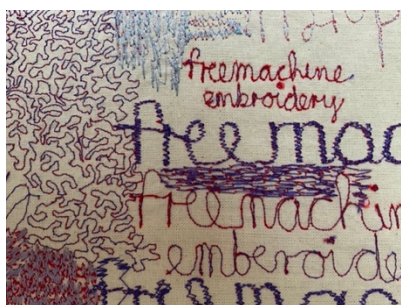 freemachine
embroidery
free mac
free machin
embroide
free mac